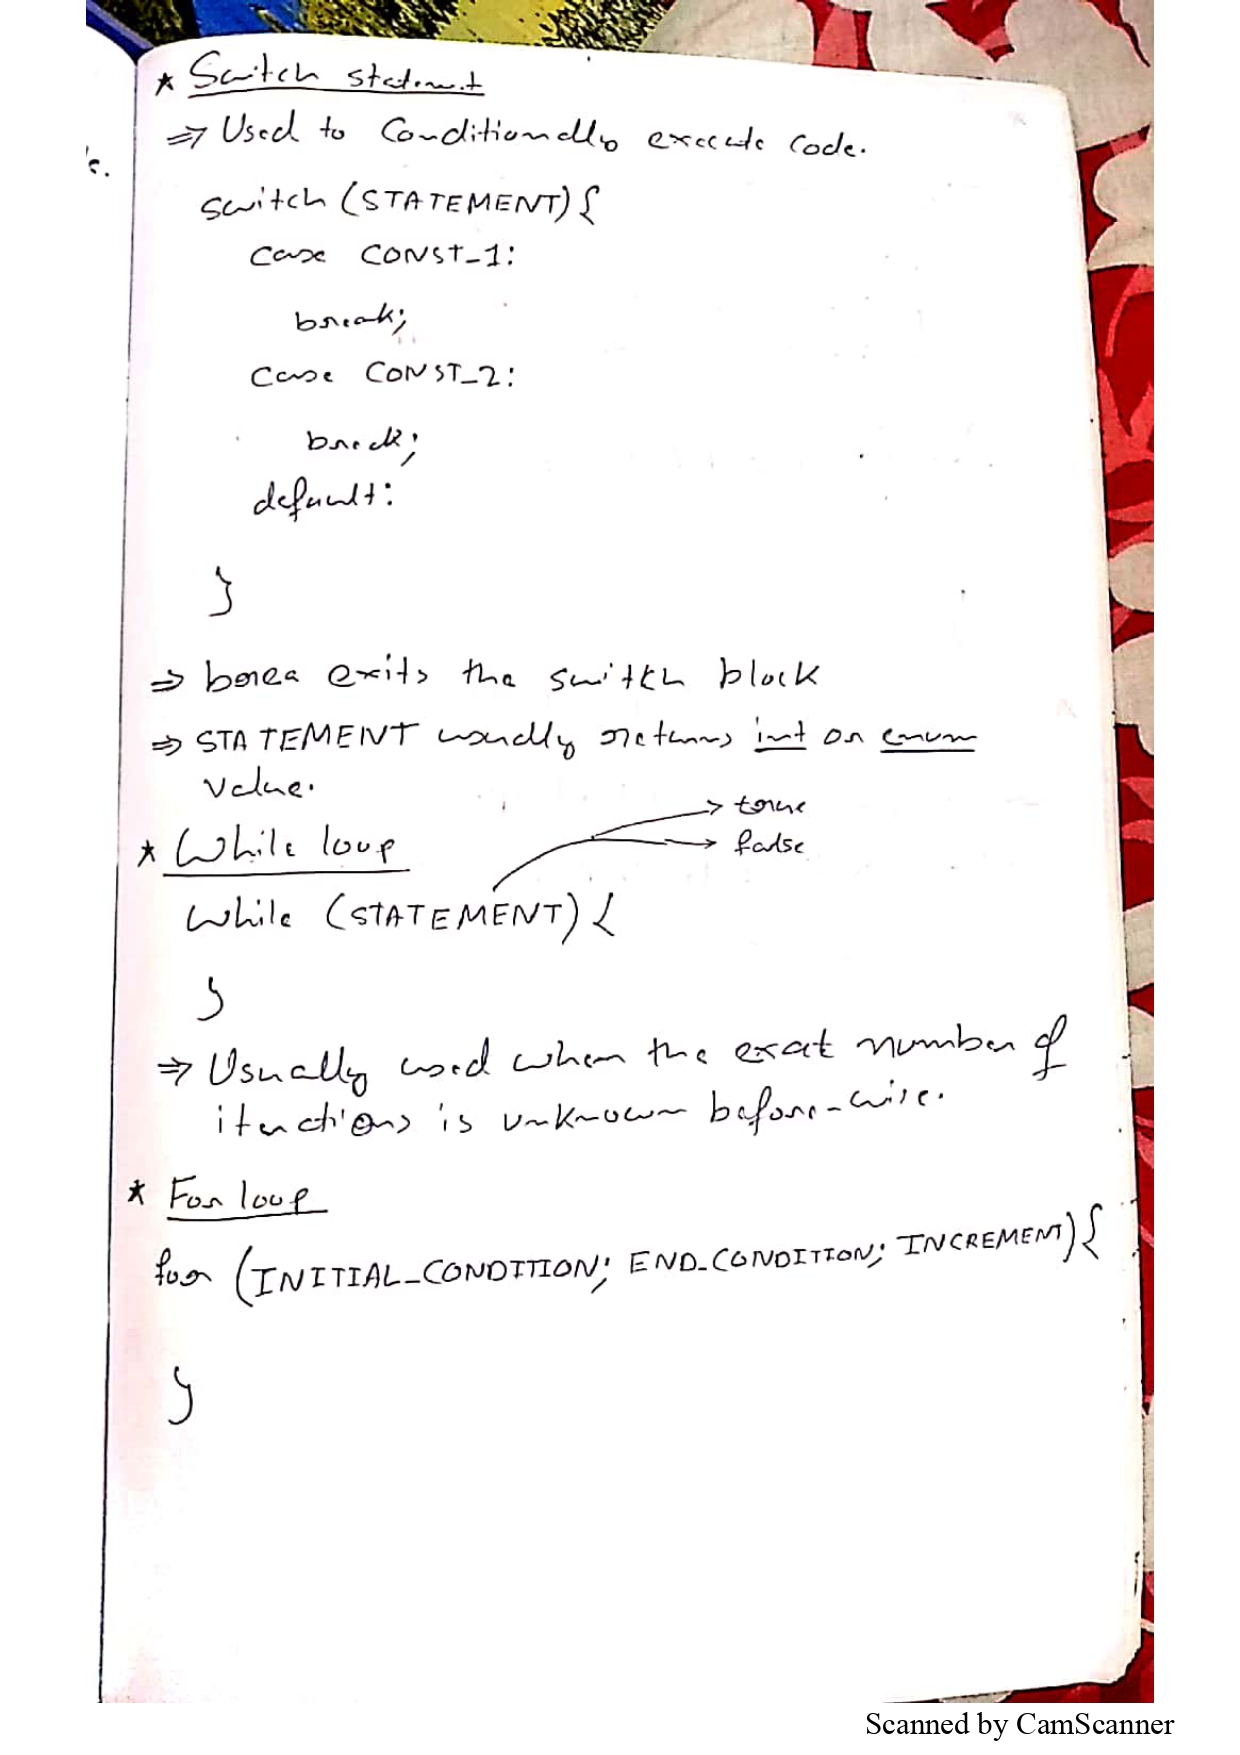 * Switch statement
⇒ Used to Conditionally execute code.
s.
switch (STATEMENT) {
case CONST_1:
break;
case CONST_2:
break;
default:
}
⇒ break exits the switch block
⇒ STATEMENT usually returns int or enum
value.
→ true
* While loop
→ false
while (STATEMENT) {
}
⇒ Usually used when the exact number of
iterations is unknown before-wise.
* For loop
for (INITIAL_CONDITION; END_CONDITION; INCREMENT) {
}
Scanned by CamScanner